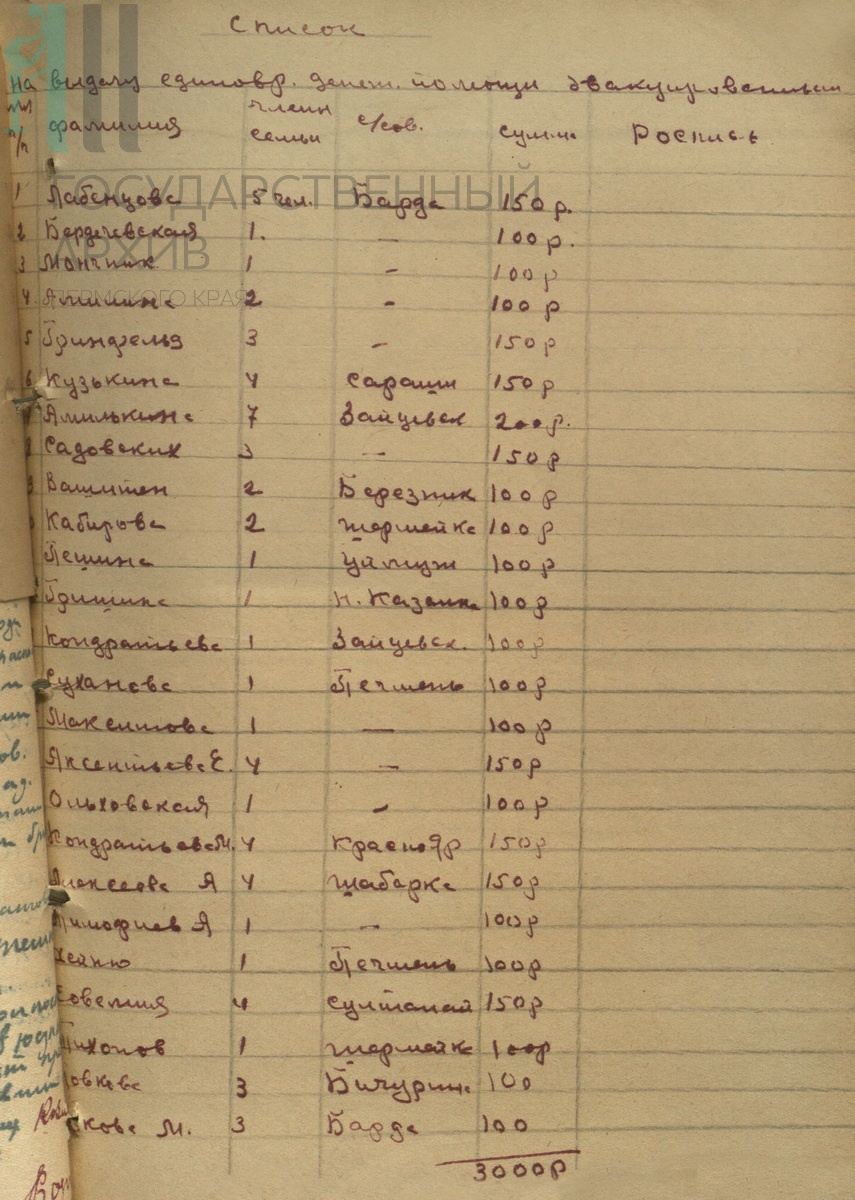 Список
на выдачу единовр. денеж. помощи эвакуированным
п/п фамилия члены семьи с/сов. сумма Роспись
ГОСУДАРСТВЕННЫЙ
АРХИВ
ПЕРМСКОГО КРАЯ
1 Лабенцова 5 чел. Барда 150 р.
2 Бердичевская 1. — 100 р.
3 Мончик 1 — 100 р
4 Амшина 2 - 100 р
5 Гринфельд 3 — 150 р
6 Кузькина 4 Сараши 150 р
Амилькина 7 Зайцевск 200 р.
Садовских 3 — 150 р
2 Березник 100 р
Кабирова 2 Шермейка 100 р
Пешина 1 Уймуж 100 р
Гришина 1 Н. Казанка 100 р
Кондратьева 1 Зайцевск. 100 р
Суханова 1 Печмень 100 р
Максимова 1 — 100 р
Аксентьева Е. 4 — 150 р
Ольховская 1 - 100 р
Кондратьева М. 4 Краснояр 150 р
Алексеева А 4 Шабарка 150 р
Тимофиев А 1 — 100 р
1 Печмень 100 р
4 Султанай 150 р
Тихонов 1 Шермейка 100 р
овкова 3 Бичурина 100
скова М. 3 Барда 100
3000 р